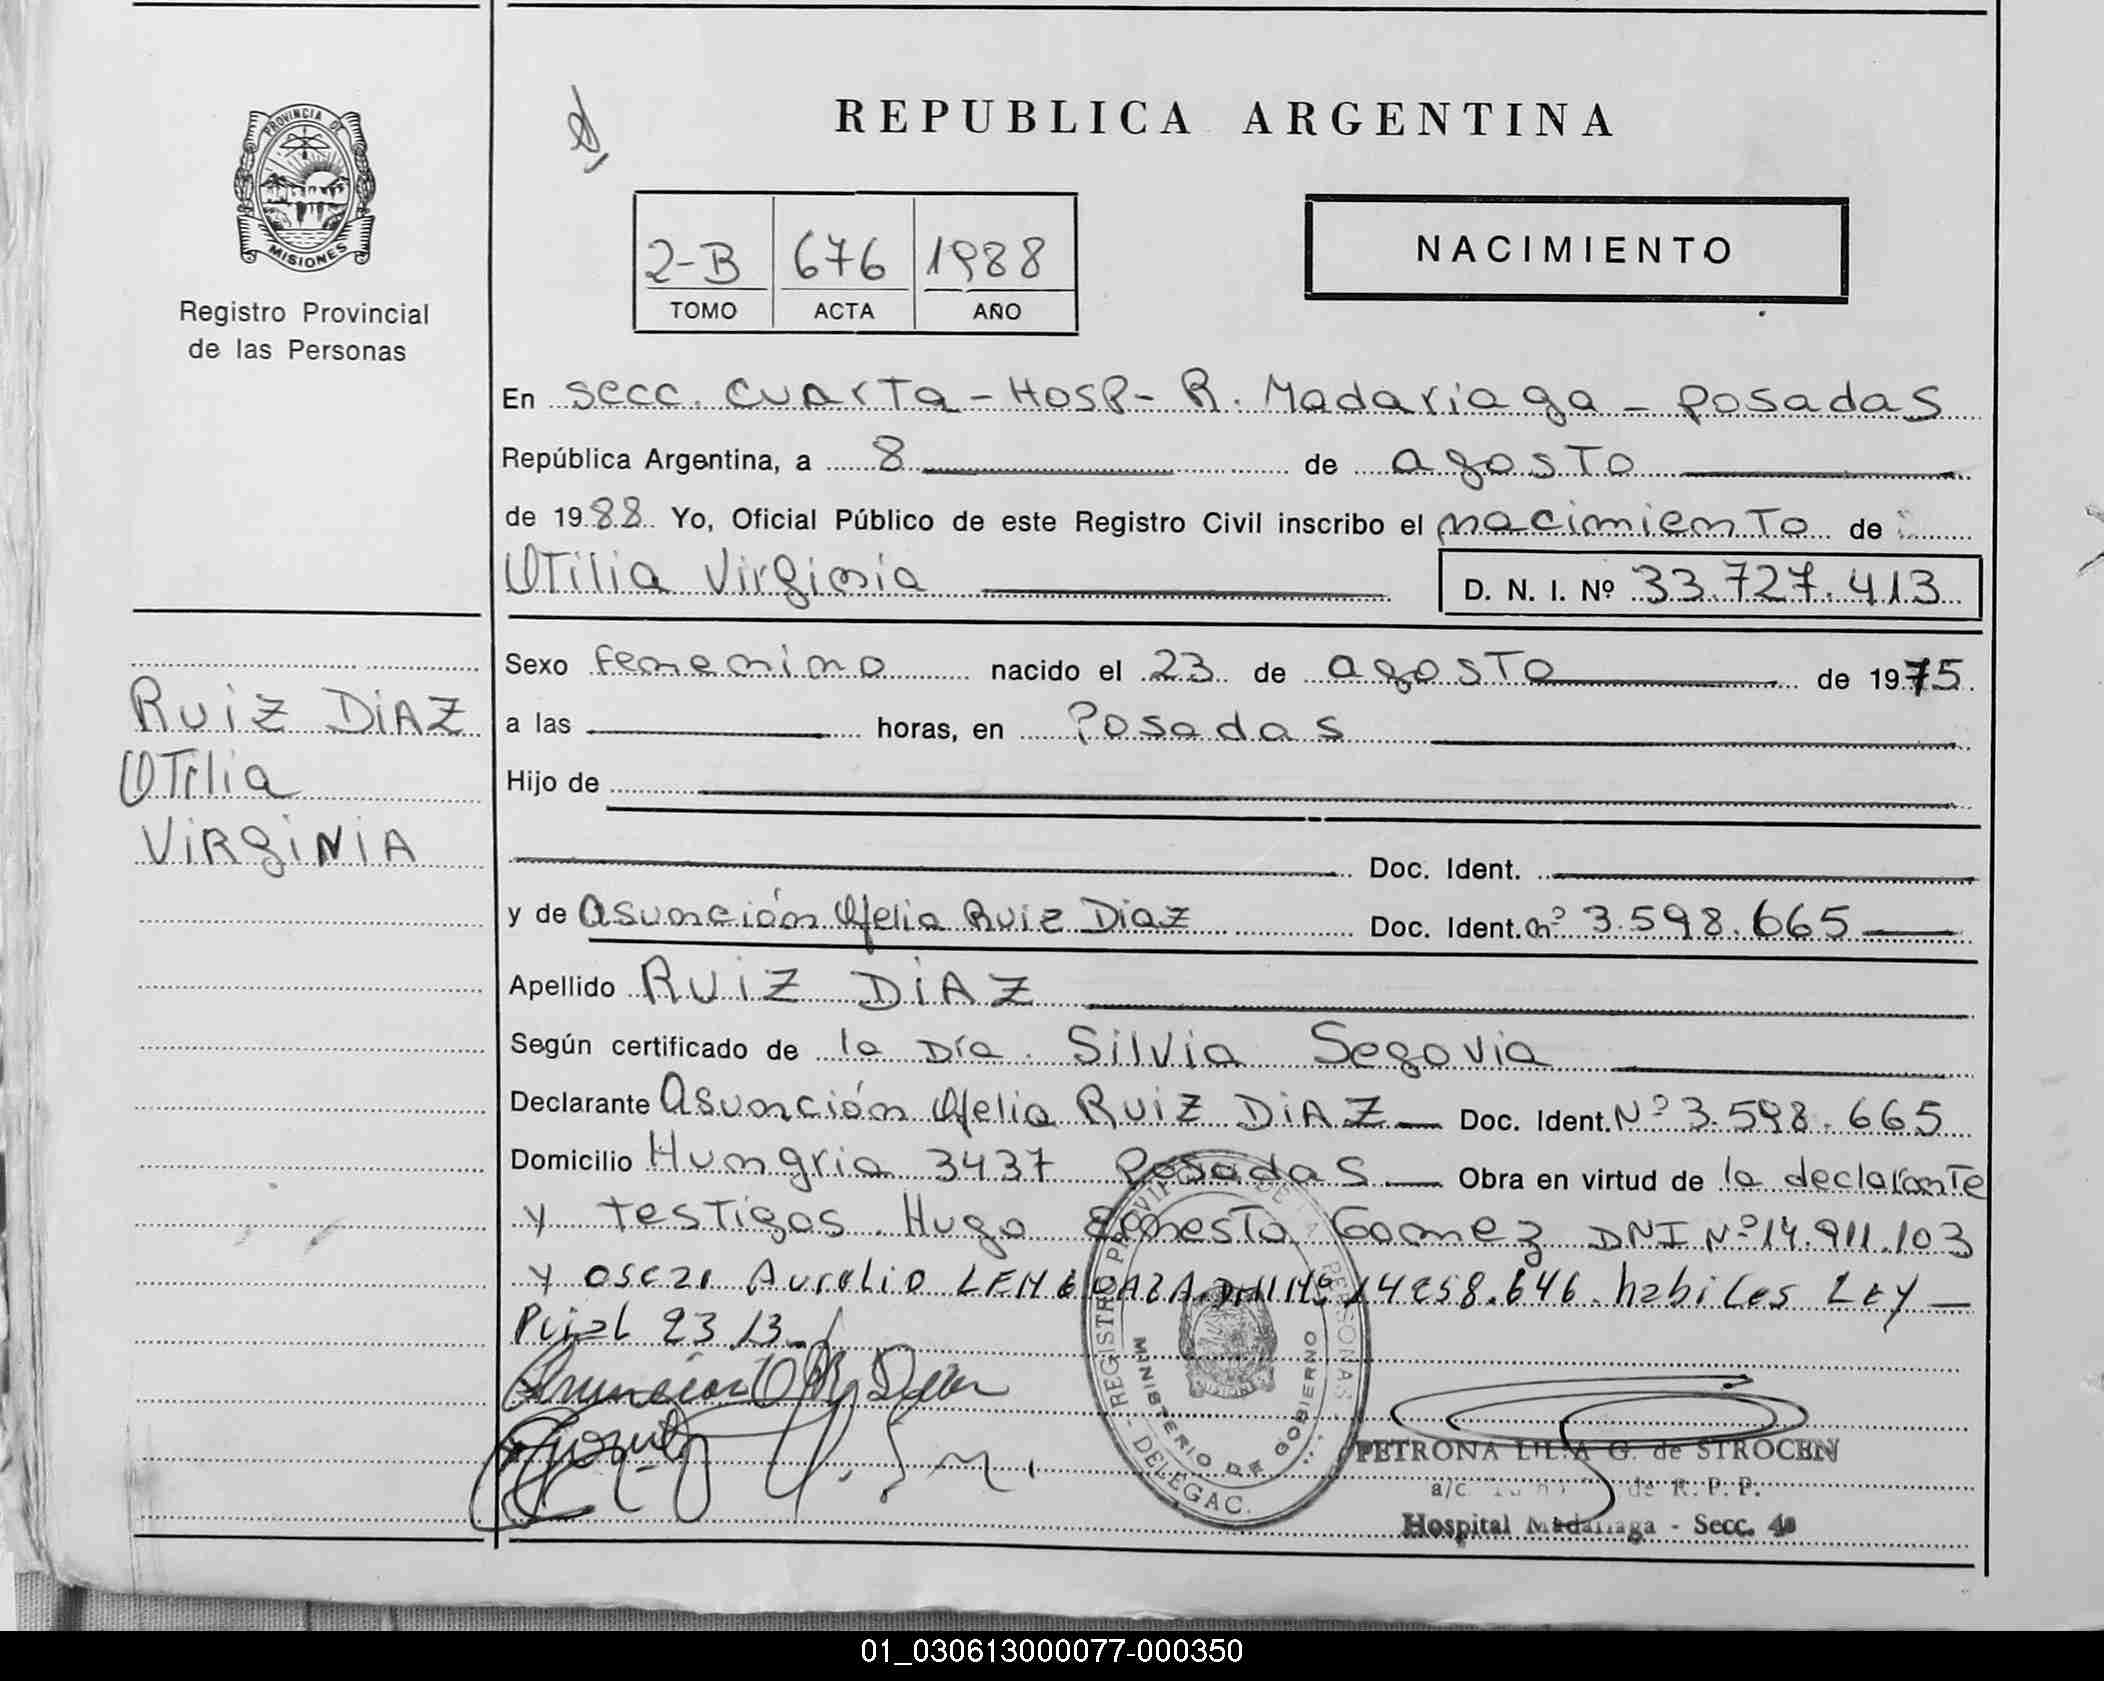 REPUBLICA ARGENTINA
PROVINCIA DE
MISIONES
Registro Provincial
de las Personas
2-B 676 1988
TOMO ACTA AÑO
NACIMIENTO
En secc. cuarta - Hosp - R. Madariaga - posadas
República Argentina, a 8 de agosto
de 1988 Yo, Oficial Público de este Registro Civil inscribo el nacimiento de
Otilia Virginia D. N. I. Nº 33.727.413
Sexo femenino nacido el 23 de agosto de 1975
RUIZ DIAZ
OTilia
VIRGINIA
a las horas, en Posadas
Hijo de
Doc. Ident.
y de Asunción Ofelia Ruiz Diaz Doc. Ident. nº 3.598.665
Apellido RUIZ DIAZ
Según certificado de la Dra. Silvia Segovia
Declarante Asunción Ofelia RUIZ DIAZ Doc. Ident. Nº 3.598.665
Domicilio Hungria 3437 Posadas Obra en virtud de la declarante
y testigos Hugo Ernesto Gomez DNI Nº 14.911.103
y oscar Aurelio LEMBOAZA DNI Nº 14258.646. habiles Ley
Pcial 23/3.
REGISTRO PROVINCIAL DE LAS PERSONAS
MINISTERIO DE GOBIERNO
DELEGAC.
PETRONA LILA G. de STROCEN
a/c de R. P. P.
Hospital Madariaga - Secc. 4a
01_030613000077-000350